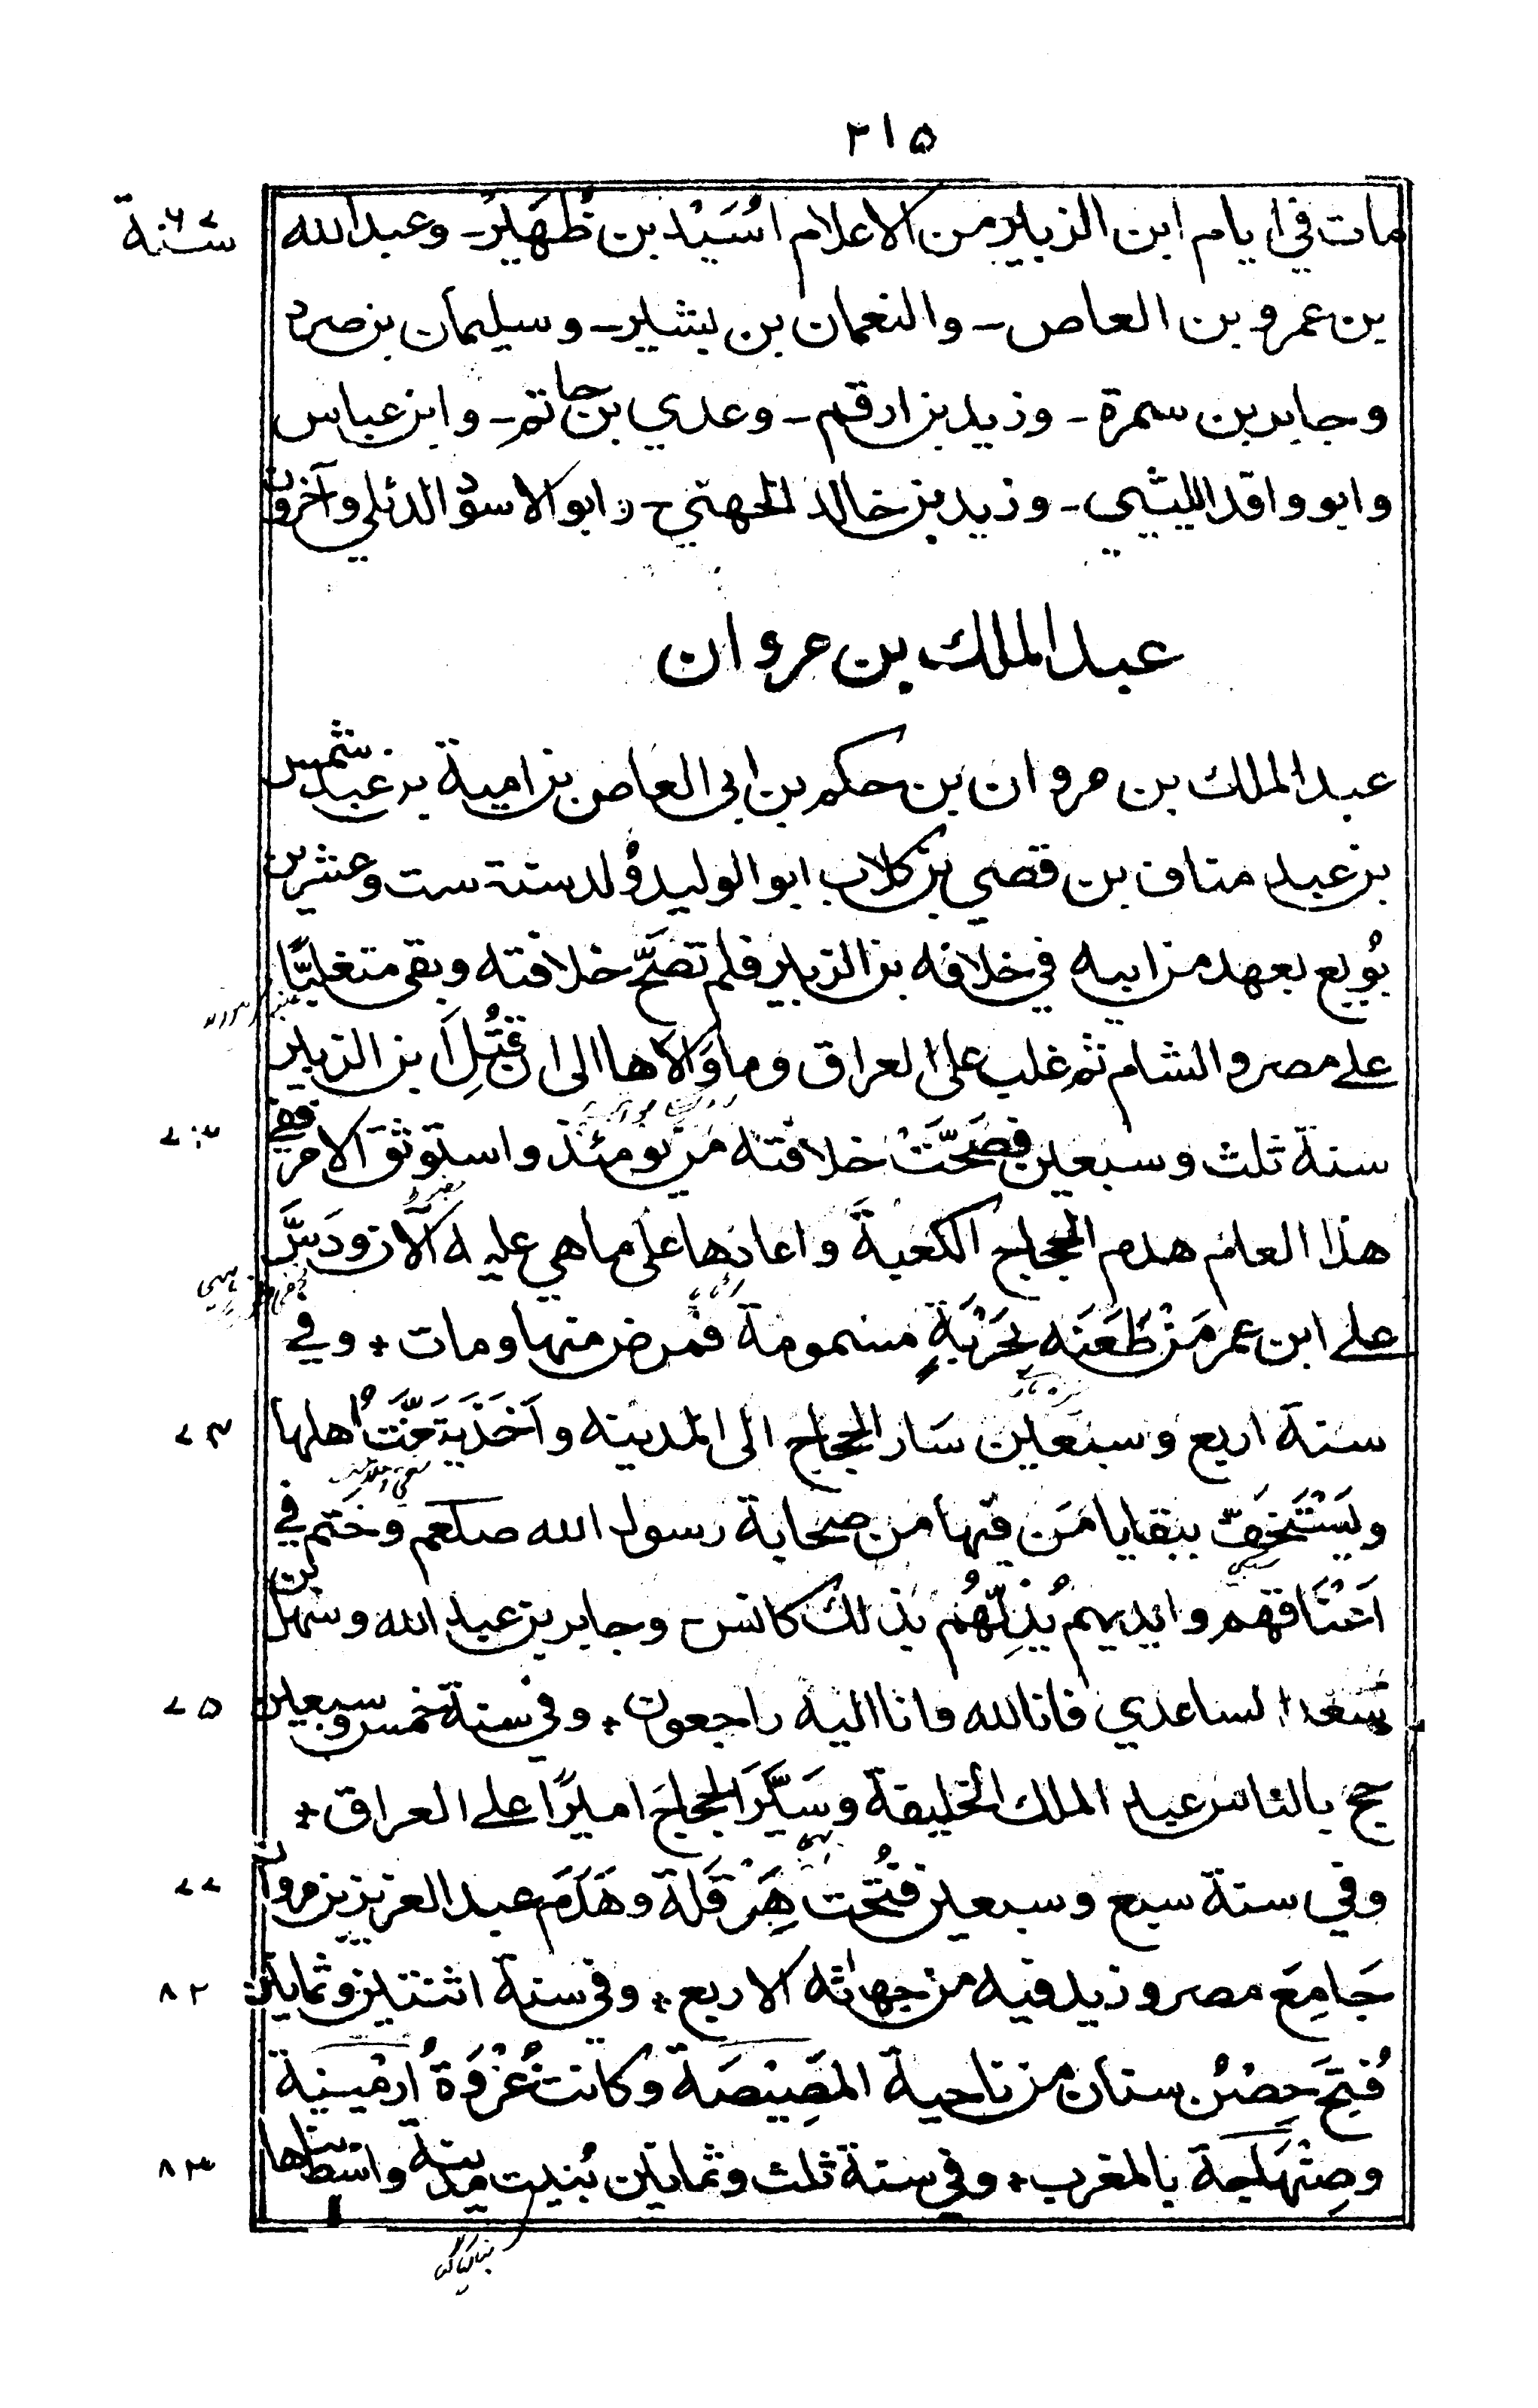 ٢١٥
مات في ايام ابن الزبير من الاعلام اُسَيْد بن ظُهَيْر ـ وعبد الله
سنة ٦٧
بن عمرو بن العاص ـ والنعمان بن بشير ـ وسليمان بن صرد
وجابر بن سمرة ـ وزيد بن ارقم ـ وعدي بن حاتم ـ وابن عباس
وابو واقد الليثي ـ وزيد بن خالد الجهني ـ وابو الاسود الدئلي وآخرون
عبد الملك بن مروان
عبد الملك بن مروان بن حكم بن ابي العاص بن امية بن عبد شمس
بن عبد مناف بن قصي بن كلاب ابو الوليد وُلد سنة ست وعشرين
بُويع بعهد من ابيه في خلافه بن الزبير فلم تصَحَّ خلافته وبقي متغلبًا
على مصر والشام ثم غلب على العراق وما وَالاها الى ان قُتِلَ ابن الزبير
سنة ثلث وسبعين فصَحَّتْ خلافته من يومئذ واستوثق الامر ففي
٧٣
هذا العام هدم الحجاج الكعبةَ واعادها على ما هي عليه الآن ودَسَّ
على ابن عمر مَنْ طَعَنَه بِحَرْبَةٍ مسمومة فمرض منها ومات * وفي
سنة اربع وسبعين سَار الحجاج الى المدينه واَخَذَ يَتعَنَّتُ اهلها
٧٤
ويَسْتَخِفّ ببقايا مَن فيها من صحابة رسول الله صلعم وختم في
اَعْنَاقهم وايديهم يُذِلّهُم بذلك كانس ـ وجابر بن عبد الله وسهل بن
سَعد الساعدي فانا لله وانا اليه راجعون * وفي سنة خمس وسبعين
٧٥
حج بالناس عبد الملك الخليفة وسَيَّرَ الحجاجَ اميرًا على العراق *
وفي سنة سبع وسبعين فُتحت هِرَقْلة وهَدَمَ عبد العزيز بن مروان
٧٧
جَامِعَ مصر وزيد فيه من جهاته الاربع * وفي سنة اثنتين وثمانين
٨٢
فُتحَ حِصْن سنان من ناحية المَصِيْصَة وكانت غَزْوَةُ ارمينية
وصِنْهَاجة بالمغرب * وفي سنة ثلث وثمانين بُنيت مدينة واسط بناها
٨٣